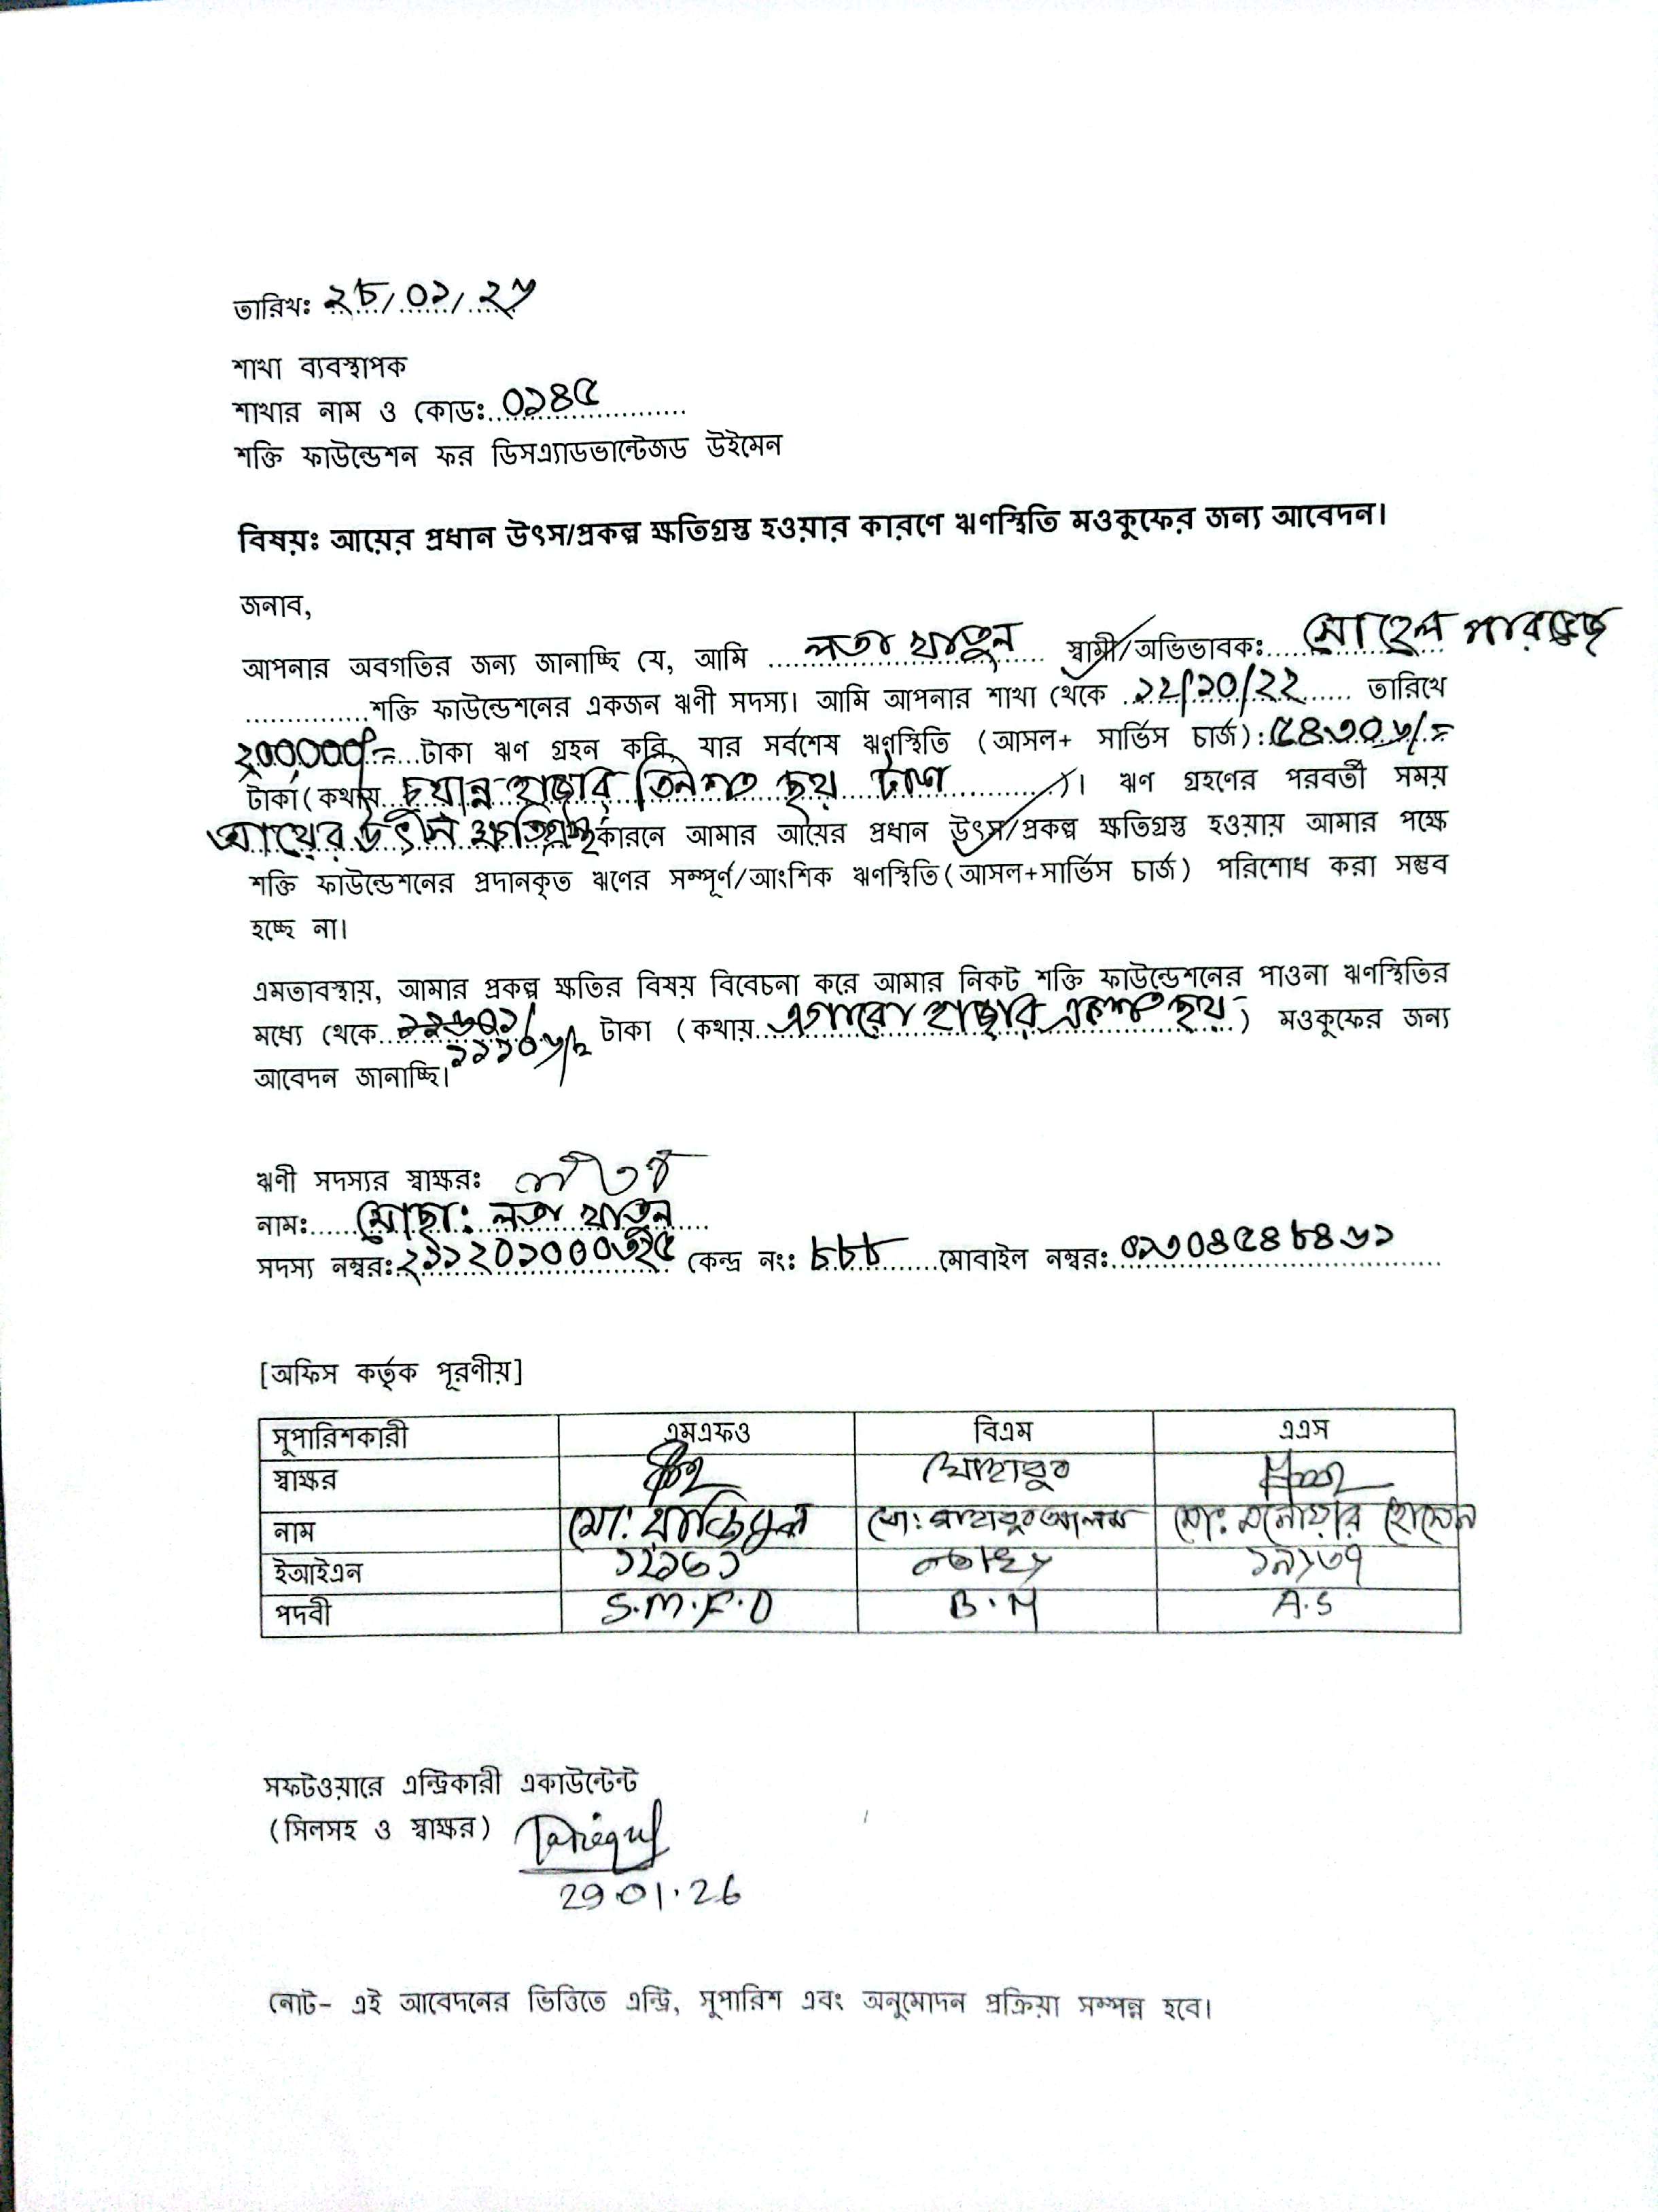 তারিখঃ ২৮/০১/২৬
শাখা ব্যবস্থাপক
শাখার নাম ও কোডঃ ০১৪৫
শক্তি ফাউন্ডেশন ফর ডিসএ্যাডভান্টেজড উইমেন
বিষয়ঃ আয়ের প্রধান উৎস/প্রকল্প ক্ষতিগ্রস্ত হওয়ার কারণে ঋণস্থিতি মওকুফের জন্য আবেদন।
জনাব,
আপনার অবগতির জন্য জানাচ্ছি যে, আমি লতা খাতুন স্বামী/অভিভাবক: সোহেল পারভেজ
শক্তি ফাউন্ডেশনের একজন ঋণী সদস্য। আমি আপনার শাখা থেকে ১২/১০/২২ তারিখে
২০০০০০/= টাকা ঋণ গ্রহন করি, যার সর্বশেষ ঋণস্থিতি (আসল+ সার্ভিস চার্জ): ৫৪৩০৬/=
টাকা(কথায় চুয়ান্ন হাজার তিনশত ছয় টাকা)। ঋণ গ্রহণের পরবর্তী সময়
আয়ের উৎস ক্ষতিগ্রস্থ কারনে আমার আয়ের প্রধান উৎস/প্রকল্প ক্ষতিগ্রস্ত হওয়ায় আমার পক্ষে
শক্তি ফাউন্ডেশনের প্রদানকৃত ঋণের সম্পূর্ণ/আংশিক ঋণস্থিতি(আসল+সার্ভিস চার্জ) পরিশোধ করা সম্ভব
হচ্ছে না।
এমতাবস্থায়, আমার প্রকল্প ক্ষতির বিষয় বিবেচনা করে আমার নিকট শক্তি ফাউন্ডেশনের পাওনা ঋণস্থিতির
মধ্যে থেকে টাকা (কথায় এগারো হাজার একশত ছয়) মওকুফের জন্য
আবেদন জানাচ্ছি। ১১১০৬/=
ঋণী সদস্যর স্বাক্ষরঃ লতা
নামঃ মোছা: লতা খাতুন
সদস্য নম্বরঃ কেন্দ্র নংঃ ৮৮৮ মোবাইল নম্বরঃ ০১৩০৪৫৪৮৪৬১
[অফিস কর্তৃক পূরণীয়]
সুপারিশকারী এমএফও বিএম এএস
স্বাক্ষর মাহাবুব
নাম মো: মো: মাহাবুব আলম মো: মনোয়ার হোসেন
ইআইএন ১২১৬১ ১৯১৩৭
পদবী S.M.F.O B.M A.S
সফটওয়ারে এন্ট্রিকারী একাউন্টেন্ট
(সিলসহ ও স্বাক্ষর) Tariqul
29.01.26
নোট- এই আবেদনের ভিত্তিতে এন্ট্রি, সুপারিশ এবং অনুমোদন প্রক্রিয়া সম্পন্ন হবে।